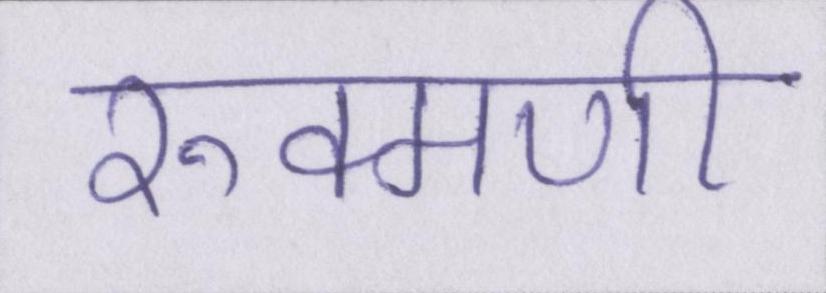 रुक्मणी